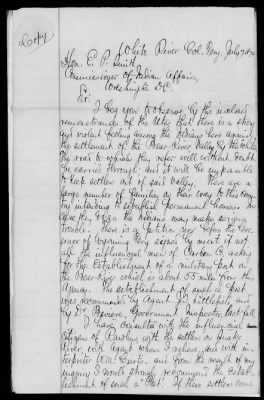 White River Col. Terry, July
Hon. E. P. Smith,
Commissioner of Indian Affairs,
Washington D.C.
Sir:
I beg now to observe by the inclosed
remonstrances of the Utes that there is a strong
and violent feeling among the Indians here against
the settlement of the Bear River Valley by the whites
The road to which they refer will without doubt
be carried through and it will be impossible
to keep settlers out of said Valley. There are a
large number of families on their way to this
intending to establish permanent homes. Un-
less they do so the Indians may make serious
trouble. There is a petition now before the Gov-
ernor of Wyoming Terry signed by most if not
all the influential men of Carbon Co. asking
for the establishment of a military post on
the Bear River which is about 55 miles from this
Agency. The establishment of such a post
was recommended by Agent J. Littlefield, and
by Dr. Government Inspector last fall.
I have consulted with the influential
citizens of Rawlins with the settlers on Snake
River, with Agent whom I relieve, and with in-
terpreter U.M. Curtis, and from the result of my
inquiry I would strongly recommend the estab-
lishment of such a "Post". If these settlers come